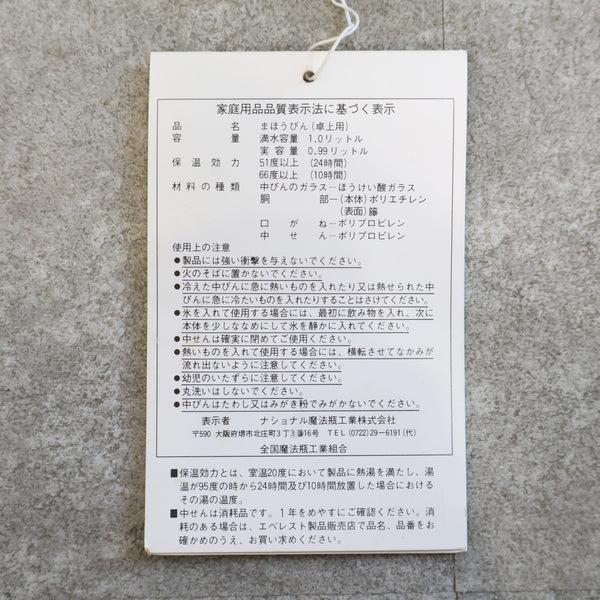 家庭用品品質表示法に基づく表示
品名 まほうびん(卓上用)
容量 満水容量 1.0リットル
実容量 0.99リットル
保温効力 51度以上 (24時間)
66度以上 (10時間)
材料の種類 中びんのガラス−ほうけい酸ガラス
胴部−(本体)ポリエチレン
(表面)籐
口がね−ポリプロピレン
中せん−ポリプロピレン
使用上の注意
●製品には強い衝撃を与えないでください。
●火のそばに置かないでください。
●冷えた中びんに急に熱いものを入れたり又は熱せられた中
びんに急に冷たいものを入れたりすることはさけてください。
●氷を入れて使用する場合には、最初に飲み物を入れ、次に
本体を少しななめにして氷を静かに入れてください。
●中せんは確実に閉めてご使用ください。
●熱いものを入れて使用する場合には、横転させてなかみが
流れ出ないように注意してください。
●幼児のいたずらに注意してください。
●丸洗いはしないでください。
●中びんはたわし又はみがき粉でみがかないでください。
表示者 ナショナル魔法瓶工業株式会社
〒590 大阪府堺市北庄町3丁3番16号 TEL(0722)29−6191(代)
全国魔法瓶工業組合
■保温効力とは、室温20度において製品に熱湯を満たし、湯
温が95度の時から24時間及び10時間放置した場合における
その湯の温度。
■中せんは消耗品です。1年をめやすにご確認ください。消
耗のある場合は、エベレスト製品販売店で品名、品番をお
確かめのうえ、お買い求めください。